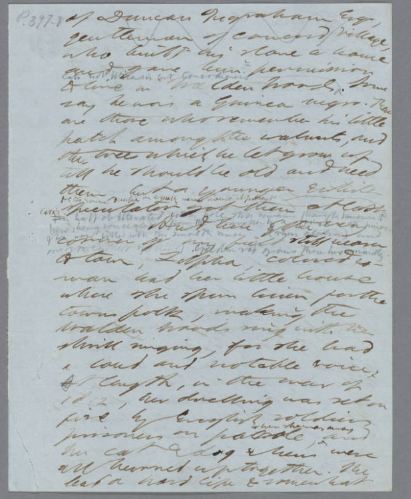 P. 397
of Duncan Ingraham Esq,
gentleman of Concord village,
who built his slave a house
and gave him permission
to live in Walden Woods. Some
say he was a Guinea negro. There
are those who remember his little
patch among the walnuts, and
the trees which he let grow up
till he should be old and need
them but a younger & white
speculator got them at last
corner of my field, still nearer
to town, Zilpha, colored
woman had her little house
where she spun linen for the
towns folk, making the
Walden woods ring with her
shrill singing, for she had
a loud and notable voice.
At length, in the war of
1812, her dwelling was set on
fire by English soldiers,
prisoners on parole, when she was away, and
her cat & dog & hens were
all burned up together. She
led a hard life & somewhat